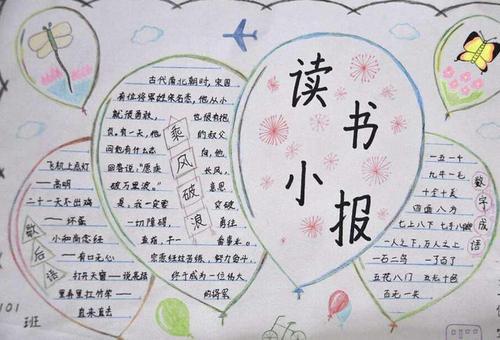 读书小报
古代南北朝时,宋国
有位将军姓宗名悫,他从小
就很勇敢, 也很有抱
负。有一天,他 的叔父
问他有什么志 向,他
回答说:"愿乘 长风,
破万里浪。" 意思
是:我一定要 突破
一切障碍, 勇往
直前,干一 番事业。
宗悫经过苦练,努力奋斗,
终于成为一位伟大
的将军
乘风破浪
飞机上点灯
——高明
二十一天不出鸡
——坏蛋
小和尚念经
——有口无心
打开天窗——说亮话
里弄里扛竹竿——
直来直去
后语
数字成语
一五一十
九牛一毛
十全十美
四面八方
七上八下 七手八脚
一人之下,万人之上
一石二鸟 一了百了
五花八门 五光十色
百无一失
101
班